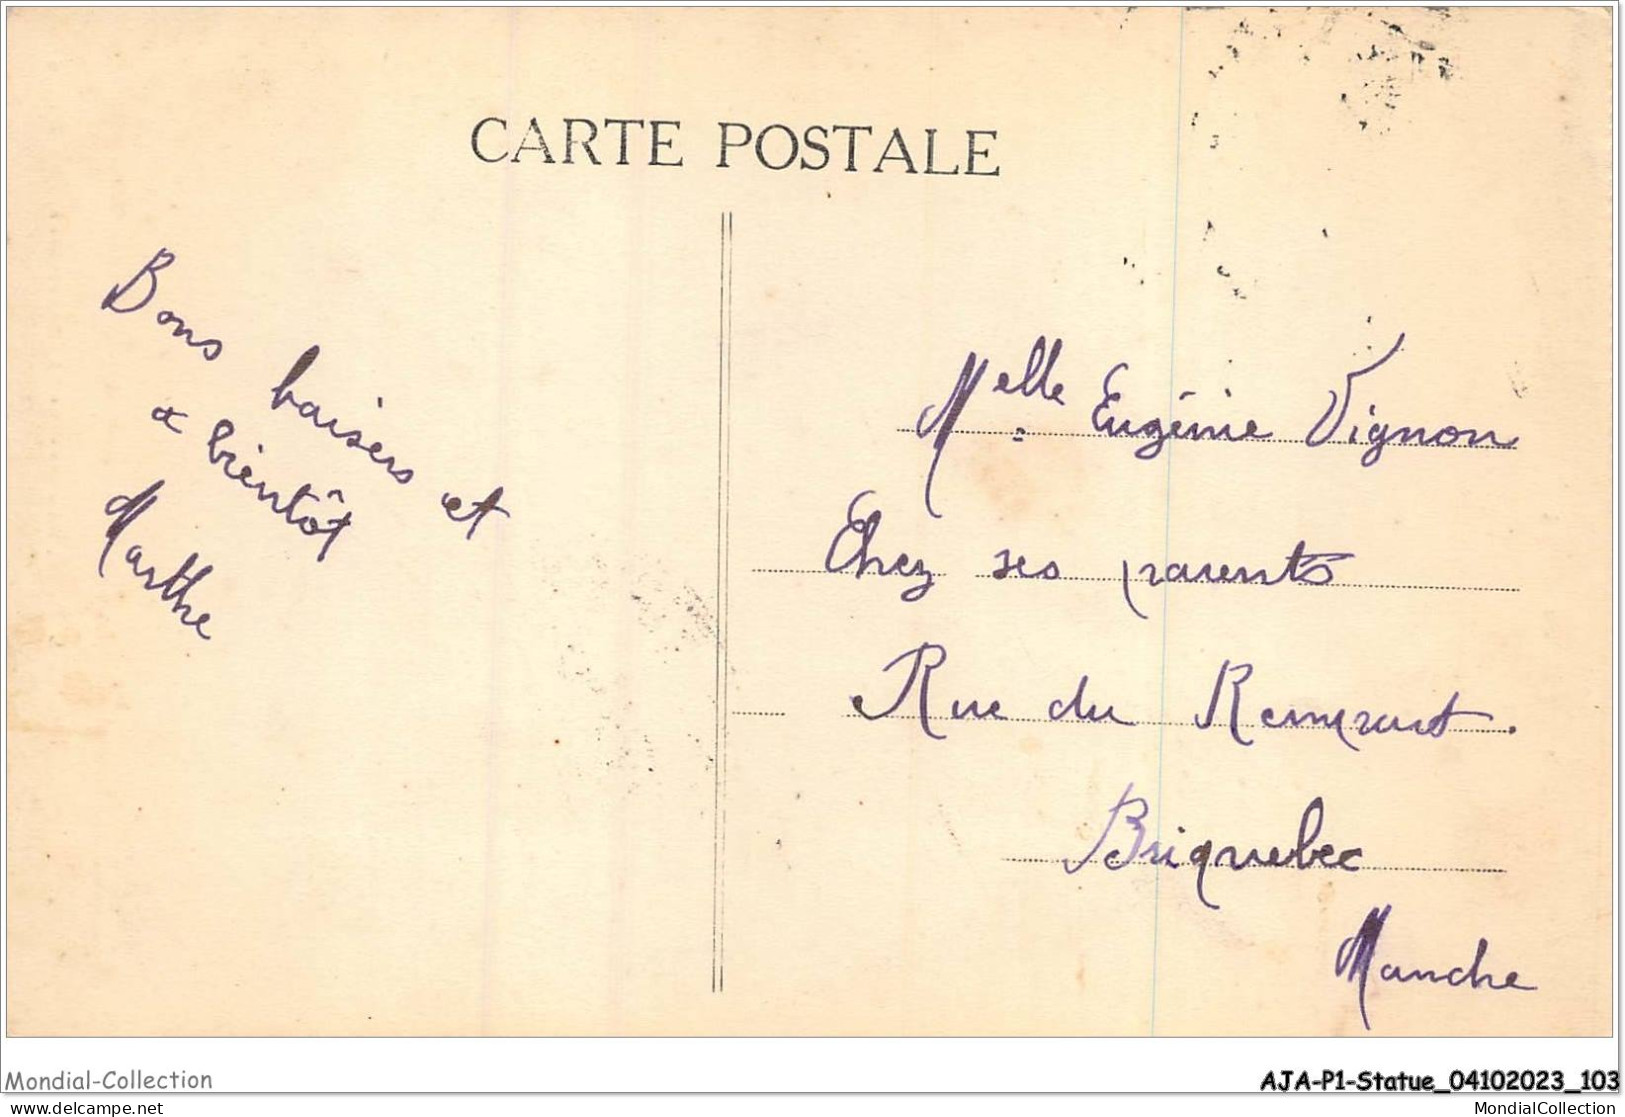 CARTE POSTALE
Bons baisers et
a bientôt
Marthe
Melle Eugénie Vignon
Chez ses parents
Rue du Rempart.
Briquebec
Manche
Mondial-Collection
AJA-P1-Statue_04102023_103
delcampe.net
MondialCollection